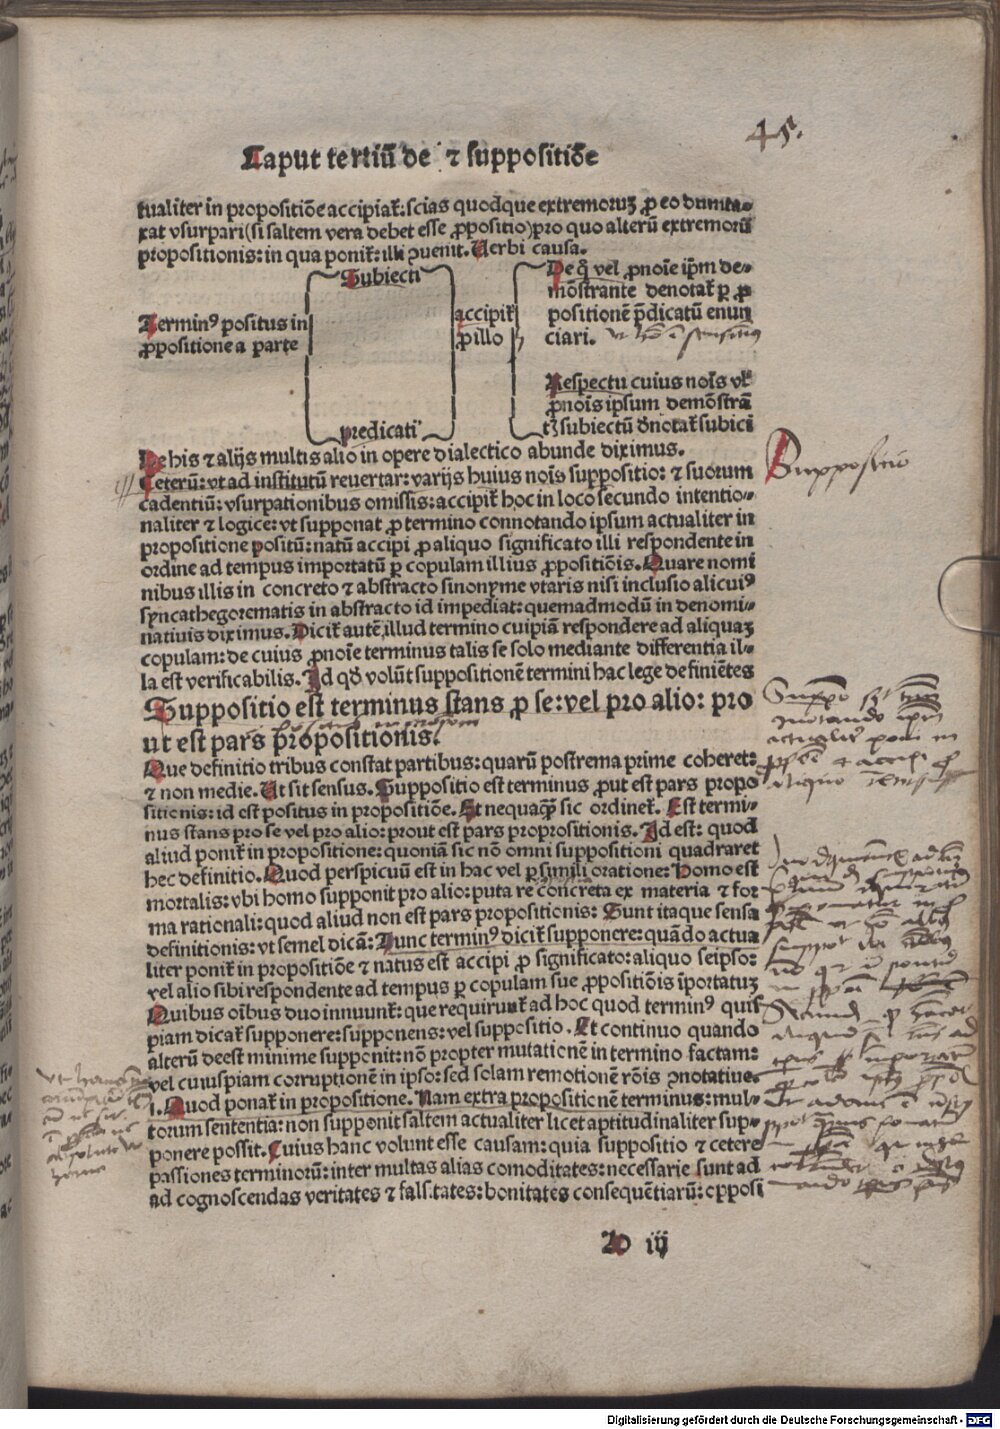 45.
Caput tertiū de ⁊ suppositiōe
tualiter in propositiōe accipiat̃: scias quodque extremoruꝫ ꝓ eo dunta⸗
xat vsurpari (si saltem vera debet esse ꝓpositio) pro quo alterū extremorū
propositionis: in qua ponit̃: illi ꝯuenit. Uerbi causa.
Subiecti
Terminꝰ positus in
ꝓpositione a parte
predicati
accipit̃
ꝓ illo
De q̄ vel ꝓnoīe ip̄m de⸗
mōstrante denotat̃ ꝑ ꝓ
positionē p̄dicatū enun
ciari.
Respectu cuius noīs vl̓
ꝓnoīs ipsum demōstrā
tꝭ subiectū d̄notat̃ subici
De his ⁊ alijs multis alio in opere dialectico abunde diximus.
Suppositio
Ceterū: vt ad institutū reuertar: varijs huius noīs suppositio: ⁊ suorum
cadentiū: vsurpationibus omissis: accipit̃ hoc in loco secundo intentio⸗
naliter ⁊ logice: vt supponat ꝓ termino connotando ipsum actualiter in
propositione positū: natū accipi ꝓ aliquo significato illi respondente in
ordine ad tempus importatū ꝑ copulam illius ꝓpositiōis. Quare nomi
nibus illis in concreto ⁊ abstracto sinonyme vtaris nisi inclusio alicuiꝰ
syncathegorematis in abstracto id impediat: quemadmodū in denomi⸗
natiuis diximus. Dicit̃ autē illud termino cuipiā respondere ad aliquaꝫ
copulam: de cuius ꝓnoīe terminus talis se solo mediante differentia il⸗
la est verificabilis. Id qd̄ volūt suppositionē termini hac lege definiētes
Suppositio est terminus stans ꝓ se: vel pro alio: pro
ut est pars propositionis.
Que definitio tribus constat partibus: quarū postrema prime coheret:
⁊ non medie. Ut sit sensus. Suppositio est terminus ꝓut est pars propo
sitionis: id est positus in propositiōe. Et nequaq̄ꝫ sic ordinet̃. Est termi⸗
nus stans pro se vel pro alio: prout est pars proprositionis. Id est: quod
aliud ponit̃ in propositione: quoniā sic nō omni suppositioni quadraret
hec definitio. Quod perspicuū est in hac vel ꝑsimili oratione: Homo est
mortalis: vbi homo supponit pro alio: puta re concreta ex materia ⁊ for
ma rationali: quod aliud non est pars propositionis: Sunt itaque sensa
definitionis: vt semel dicā: Tunc terminꝰ dicit̃ supponere: quādo actua
liter ponit̃ in propositiōe ⁊ natus est accipi ꝓ significato: aliquo seipso:
vel alio sibi respondente ad tempus ꝑ copulam sue ꝓpositiōis īportatuꝫ
Quibus oībus duo innuunt̃: que requirunt̃ ad hoc quod terminꝰ quis
piam dicat̃ supponere: supponens: vel suppositio. Et continuo quando
alterū deest minime supponit: nō propter mutationē in termino factam:
vel cuiuspiam corruptionē in ipso: sed solam remotionē rōis ꝯnotatiue.
i. Quod ponat̃ in propositione. Nam extra propositionē terminus: mul⸗
torum sententia: non supponit saltem actualiter licet aptitudinaliter sup⸗
ponere possit. Cuius hanc volunt esse causam: quia suppositio ⁊ cetere
passiones terminorū: inter multas alias comoditates: necessarie sunt ad
ad cognoscendas veritates ⁊ falsitates: bonitates consequētiarū: opposi
D iij
Digitalisierung gefördert durch die Deutsche Forschungsgemeinschaft - DFG